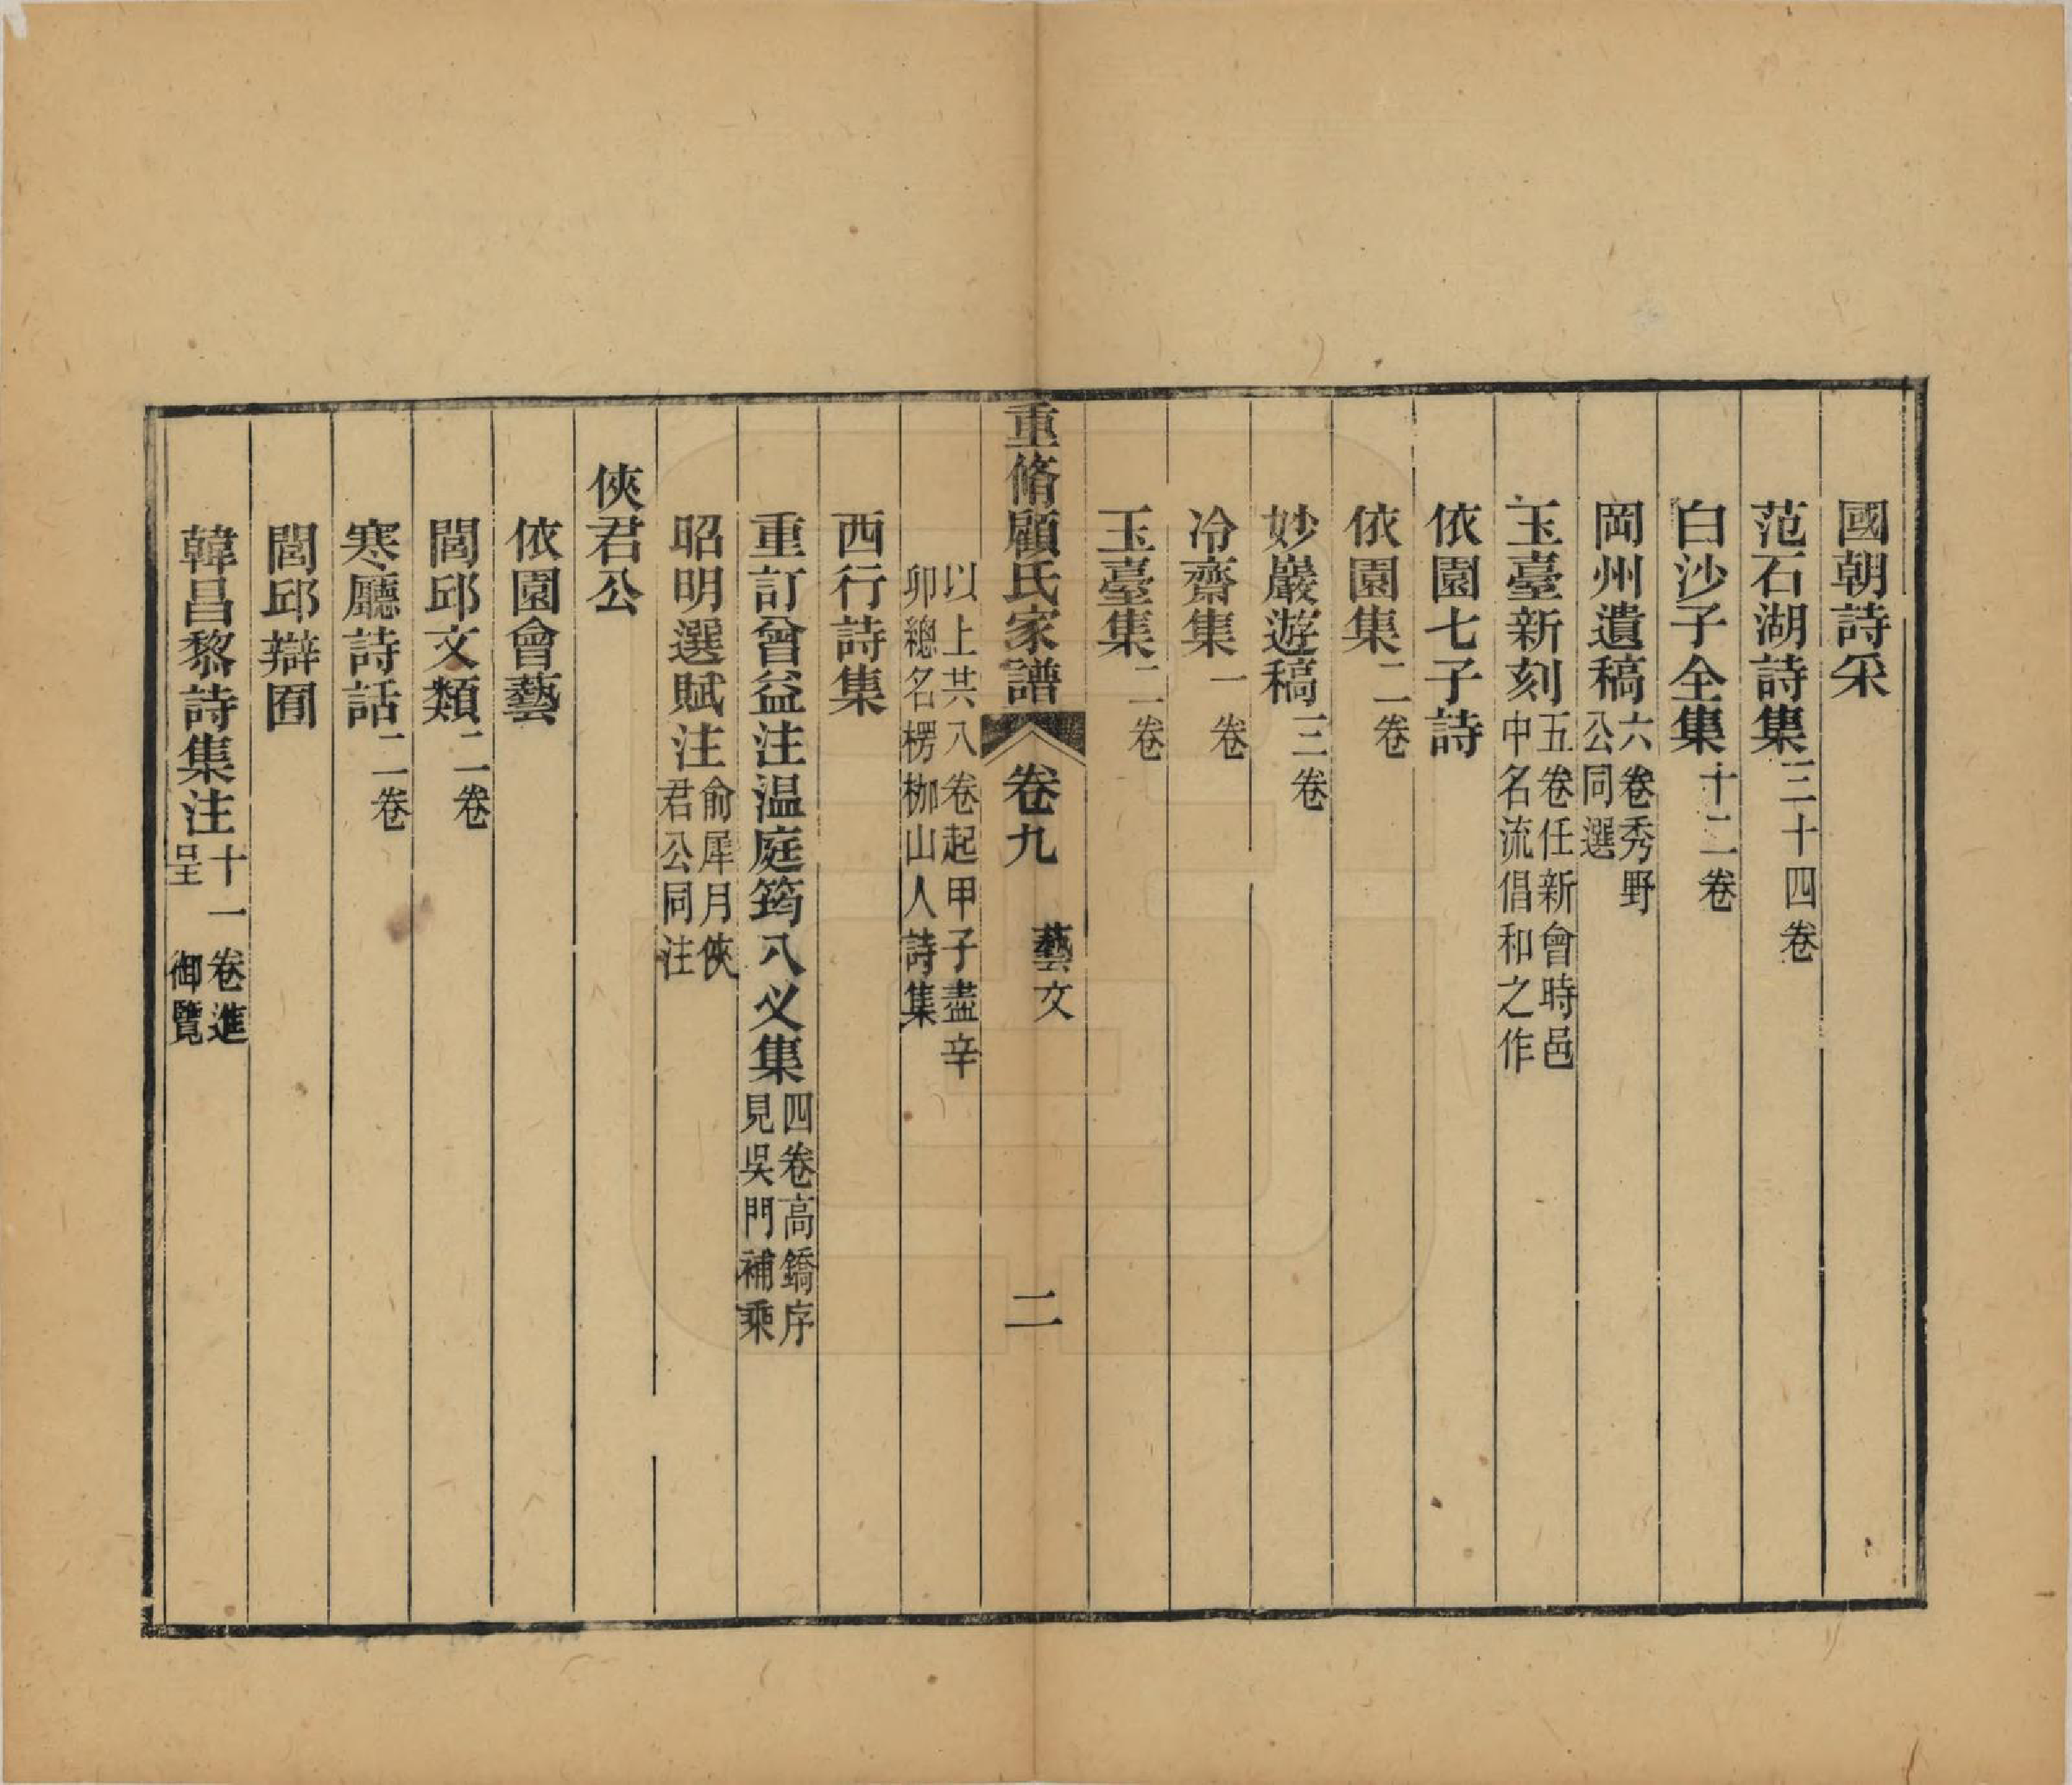 國朝詩采
范石湖詩集三十四卷
白沙子全集十二卷
岡州遺稿六卷秀野
公同選
玉臺新刻五卷任新會時邑
中名流倡和之作
依園七子詩
依園集二卷
妙巖遊稿三卷
冷齋集一卷
玉臺集二卷
重脩顧氏家譜 卷九 藝文 二
以上共八卷起甲子盡辛
卯總名楞枷山人詩集
西行詩集
重訂曾益注温庭筠八义集四卷高鐈序
見吳門補乘
昭明選賦注俞犀月俠
君公同注
俠君公
依園會藝
閭邱文類二卷
寒廳詩話二卷
閭邱辯囿
韓昌黎詩集注十一卷進
呈 御覽